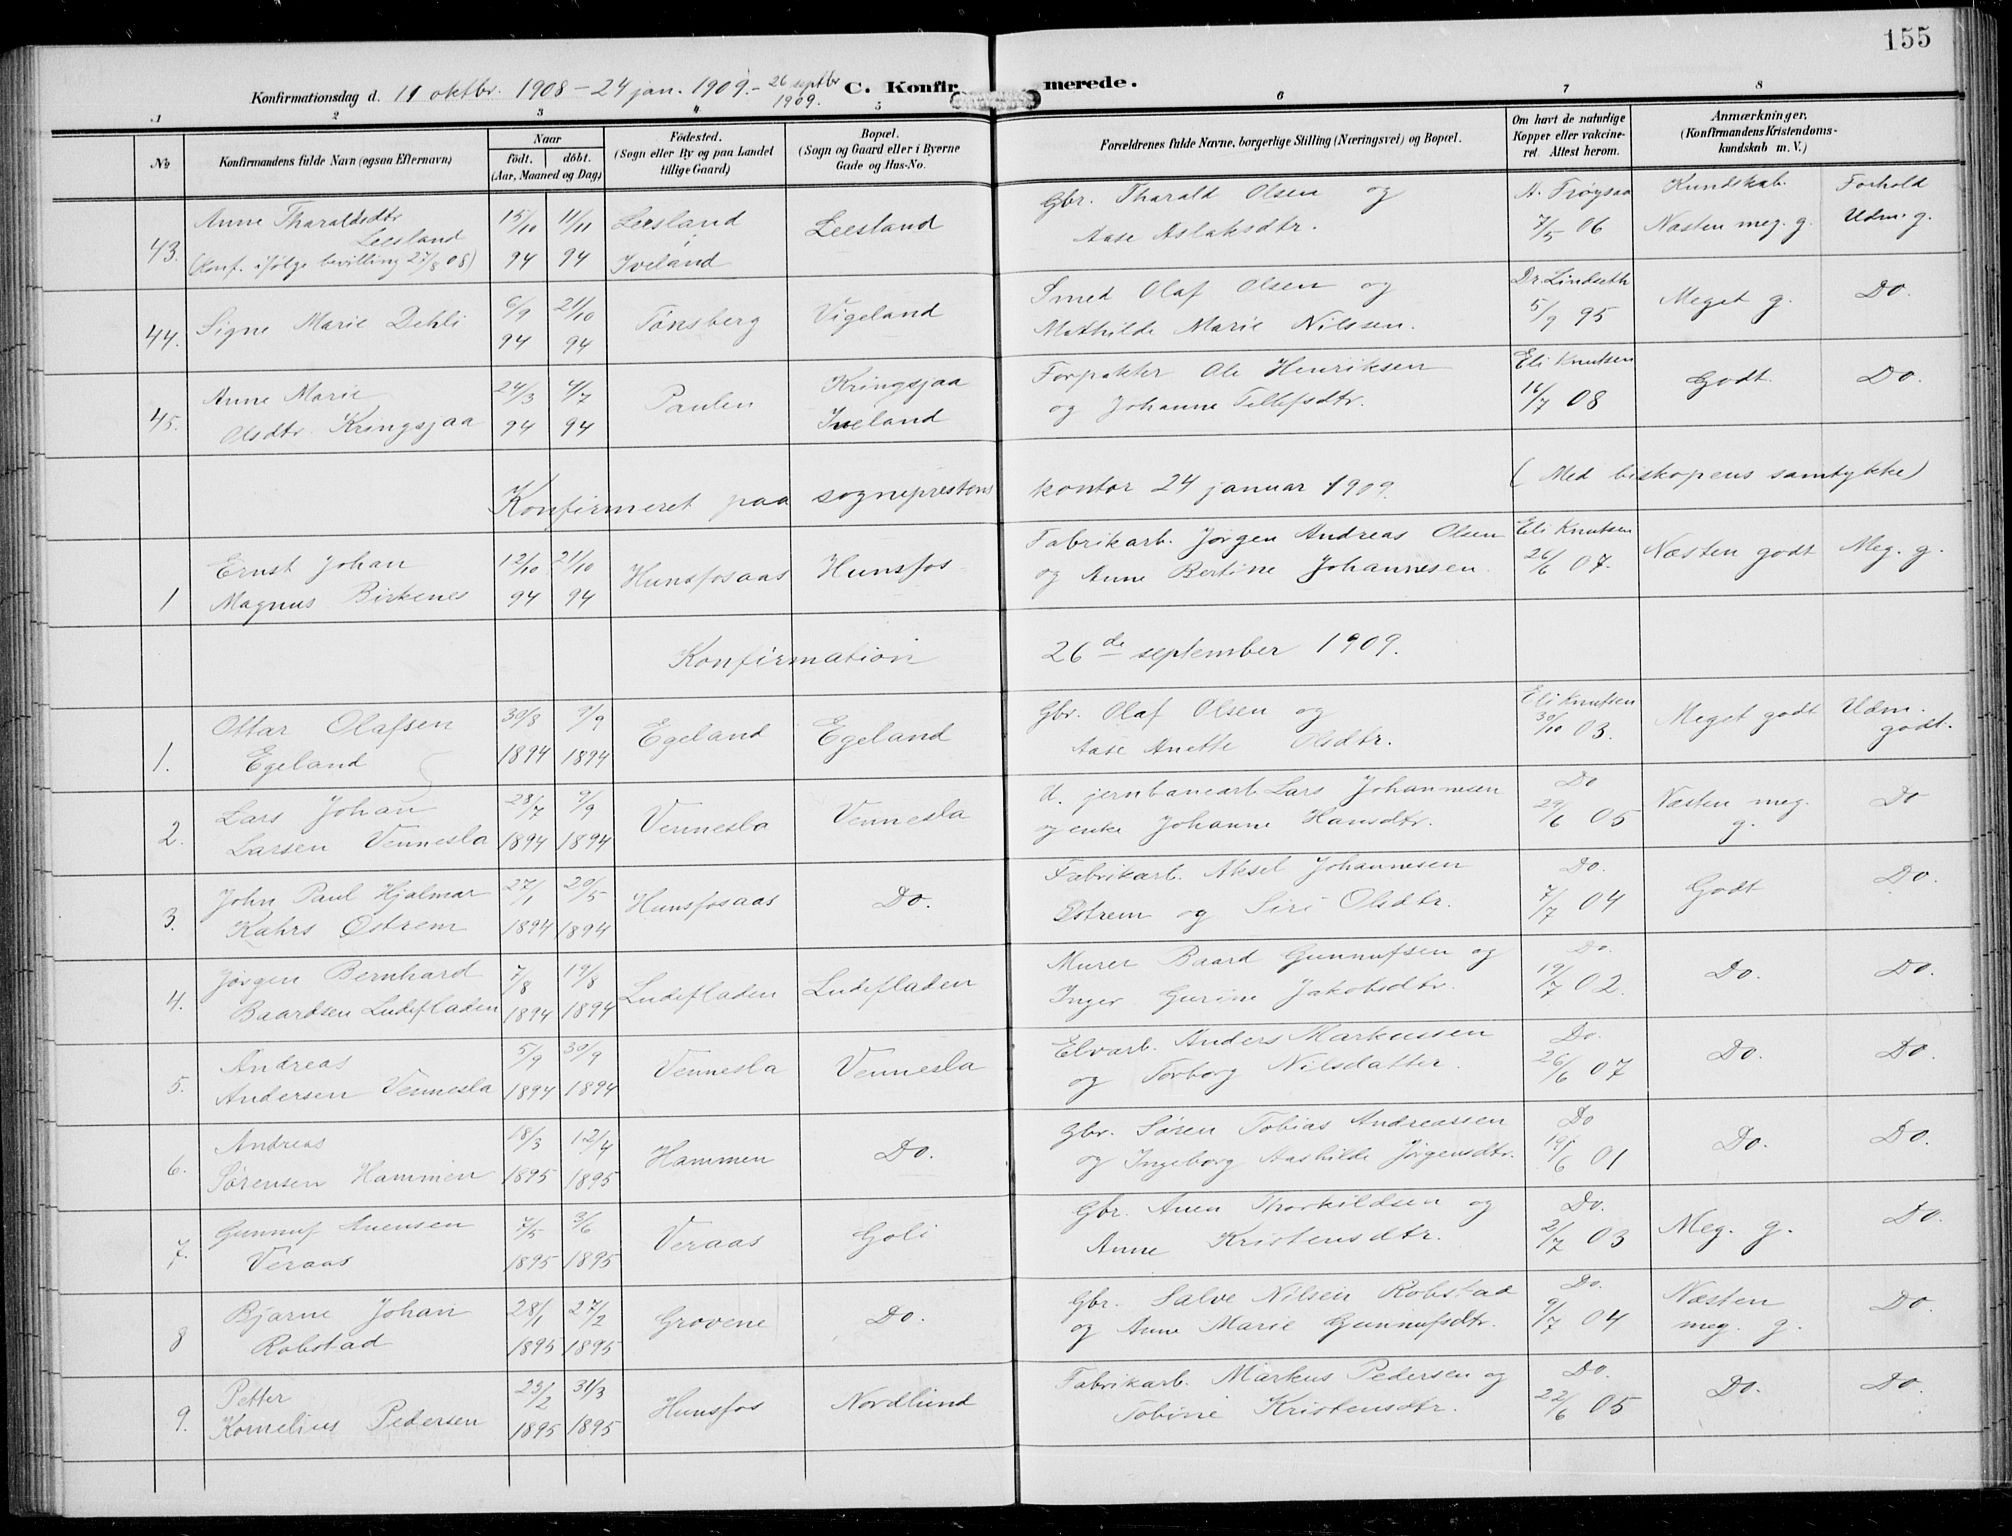 155
Konfirmationsdag d. 11 oktbr. 1908 – 24 jan. 1909. – 26 septbr 1909. C. Konfirmerede.
1 2 3 4 5 6 7 8
No
Konfirmandens fulde Navn (ogsaa Efternavn)
Naar
født. døbt.
(Aar, Maaned og Dag)
Fødested.
(Sogn eller By og paa Landet
tillige Gaard)
Bopæl.
(Sogn og Gaard eller i Byerne
Gade og Hus-No.
Forældrenes fulde Navne, borgerlige Stilling (Næringsvei) og Bopæl.
Om havt de naturlige
Kopper eller vakcine-
ret. Attest herom.
Anmærkninger,
(Konfirmandens Kristendoms-
kundskab m. V.)
Kundskab. Forhold
43. Anne Tharaldsdtr Leesland (Konf. ifølge bevilling 27/8 08) 15/10 94 11/11 94 Leesland i Iveland Leesland Gbr. Tharald Olsen og Aase Aslaksdtr. A. Frøysaa 7/5 06 Næsten meg. g. Udm. g.
44. Signe Marie Dehli 6/9 94 21/10 94 Tønsberg Vigeland Smed Olaf Olsen og Mathilde Marie Nilssen. Dr. Lindseth 5/9 95 Meget g. Do.
45. Anne Marie Olsdtr. Kringsjaa 24/3 94 4/7 94 Paulen Kringsjaa Iveland Forpakter Ole Henriksen og Johanne Tellefsdtr. Eli Knutsen 16/7 08 Godt. Do.
Konfirmeret paa sogneprestens kontor 24 januar 1909. (Med biskopens samtykke)
1 Ernst Johan Magnus Birkenes 12/10 94 21/10 94 Hunsfosaas Hunsfos Fabrikarb. Jørgen Andreas Olsen og Anne Bertine Johannesen. Eli Knutsen 26/6 07. Næsten godt Meg. g.
Konfirmation 26de september 1909.
1. Ottar Olafsen Egeland 30/8 1894 9/9 1894 Egeland Egeland Gbr. Olaf Olsen og Aase Anette Olsdtr. Eli Knutsen 30/10 03. Meget godt Udm. godt.
2. Lars Johan Larsen Vennesla 28/7 1894 9/9 1894 Vennesla Vennesla d. jernbanearb. Lars Johannesen og enke Johanne Hansdtr. Do 29/6 05 Næsten meg. g. Do
3. John Paul Hjalmar Kahrs Østrem 27/1 1894 20/5 1894 Hunsfosaas Do. Fabrikarb. Aksel Johannesen Østrem og Siri Olsdtr. Do. 7/7 04 Godt Do.
4. Jørgen Bernhard Baardsen Ludefladen 7/8 1894 19/8 1894 Ludefladen Ludefladen Murer Baard Gunnufsen og Inger Gurine Jakobsdtr. Do. 19/7 02. Do. Do.
5. Andreas Andersen Vennesla 5/9 1894 30/9 1894 Vennesla Vennesla Elvarb. Anders Markussen og Torborg Nilsdatter. Do. 26/6 07 Do. Do.
6. Andreas Sørensen Hammen 18/3 1895 12/4 1895 Hammen Do. Gbr. Søren Tobias Andreassen og Ingeborg Aashilde Jørgensdtr. Do 19/6 01 Do. Do.
7. Gunnuf Auensen Veraas 7/5 1895 3/6 1895 Veraas Goli Gbr. Auen Thorkildsen og Anne Kristensdtr. Do. 2/7 03 Meg. g. Do.
8 Bjarne Johan Robstad 28/1 1895 27/2 1895 Grovene Do. Gbr. Salve Nilsen Robstad og Anne Marie Gunnufsdtr. Do. 9/7 04 Næsten meg. g. Do.
9. Petter Kornelius Pedersen 23/2 1895 31/3 1895 Hunsfos Nordlund Fabrikarb. Markus Pedersen og Tobine Kristensdtr. Do. 22/6 05 Do. Do.